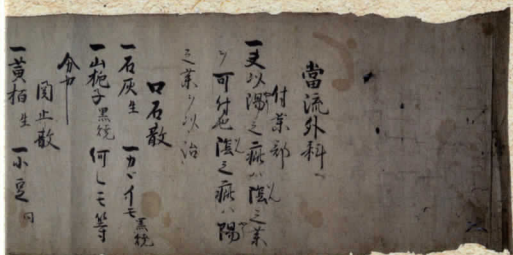 當流外科
付薬部
一夫以陽之疵ハ陰之薬
ヲ可付也陰之疵ハ陽
之薬ヲ以治
口石散
一石灰生 一カヾイモ黒焼
一山梔子黒焼 何レモ等
分
止散
一黄栢生 一小豆同